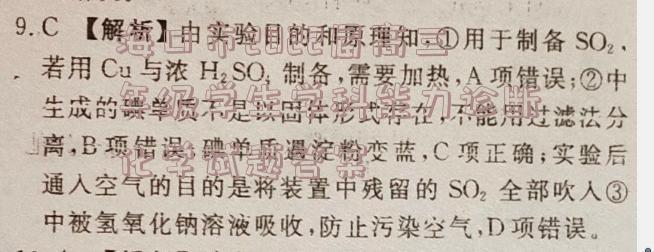 9. C 【解析】由实验目的和原理知,①用于制备 SO₂,
若用 Cu 与浓 H₂SO₄ 制备,需要加热,A 项错误;②中
生成的碘单质不是以固体形式存在,不能用过滤法分
离,B 项错误;碘单质遇淀粉变蓝,C 项正确;实验后
通入空气的目的是将装置中残留的 SO₂ 全部吹入③
中被氢氧化钠溶液吸收,防止污染空气,D 项错误。
海口市2022届高三
年级学生学科能力诊断
化学试题答案